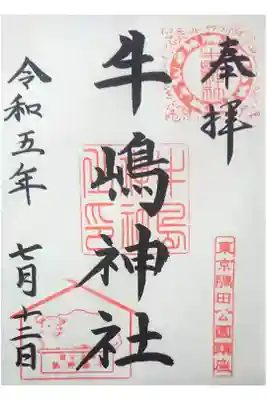 奉拝
牛嶋神社
令和五年
七月十二日
東京隅田公園鎮座